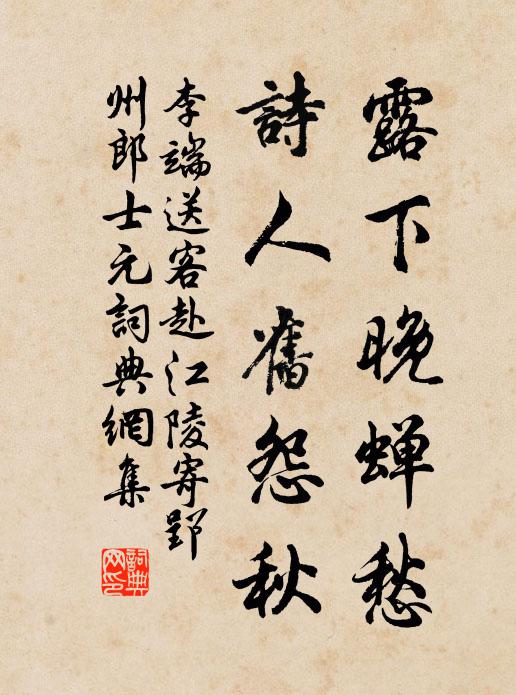 露下晚蟬愁
詩人舊怨秋
李端送客赴江陵寄郢
州郎士元詞典網集
詞典網印